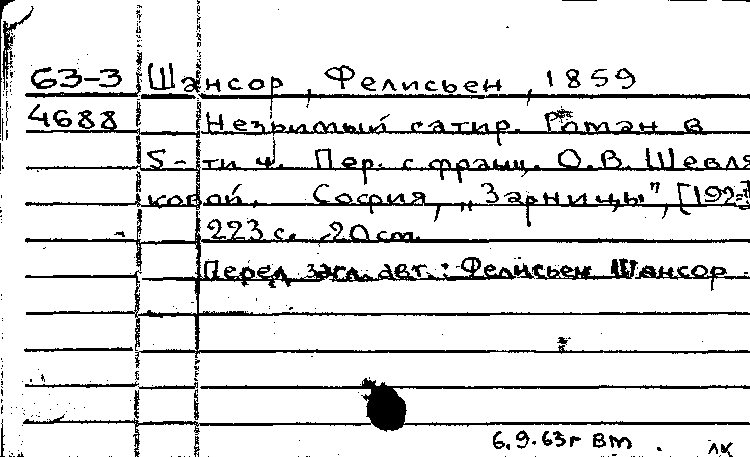 63-3 Шансор, Фелисьен, 1859
4688 Незримый сатир. Роман в
5-ти ч. Пер. с франц. О.В. Шевля
ковой. София, „Зарницы", [192-]
223 с. 20 cm.
Перед загл. авт.: Фелисьен Шансор.
6.9.63г Вт
ЛК